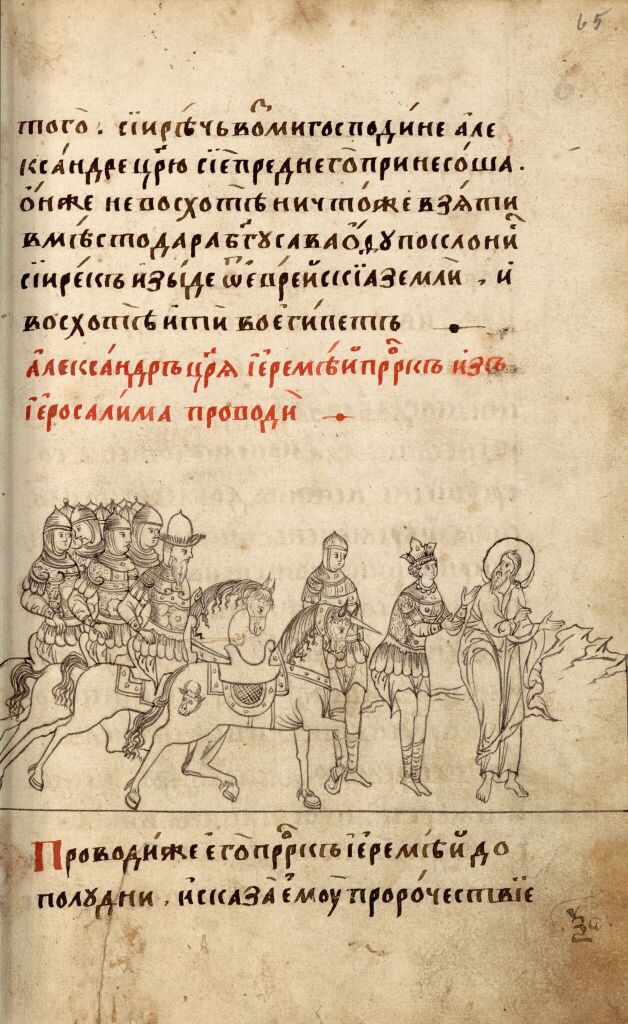 65
того . сїирѣчьвомигосподине але
ѯандрецр҃ю сїепреднегопринесоша .
онже невосхотѣничтоже взяти
вмѣстодара бг҃усаваоѳупоклони
сїирекъизыде ѿеврейскїаземли . и
восхотѣити воегипетъ
александръцр҃я їеремѣйпрⷪ҇ркъ изъ
їеросалима проводи
Проводижеегопрⷪ҇ркъїеремѣй до
полудни . исказаемоу пророчествїе